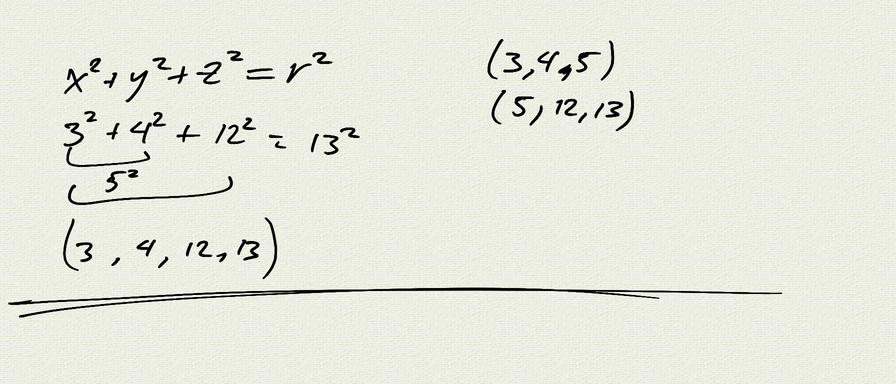 x² + y² + z² = r²
3² + 4² + 12² = 13²
5²
(3, 4, 12, 13)
(3, 4, 5)
(5, 12, 13)